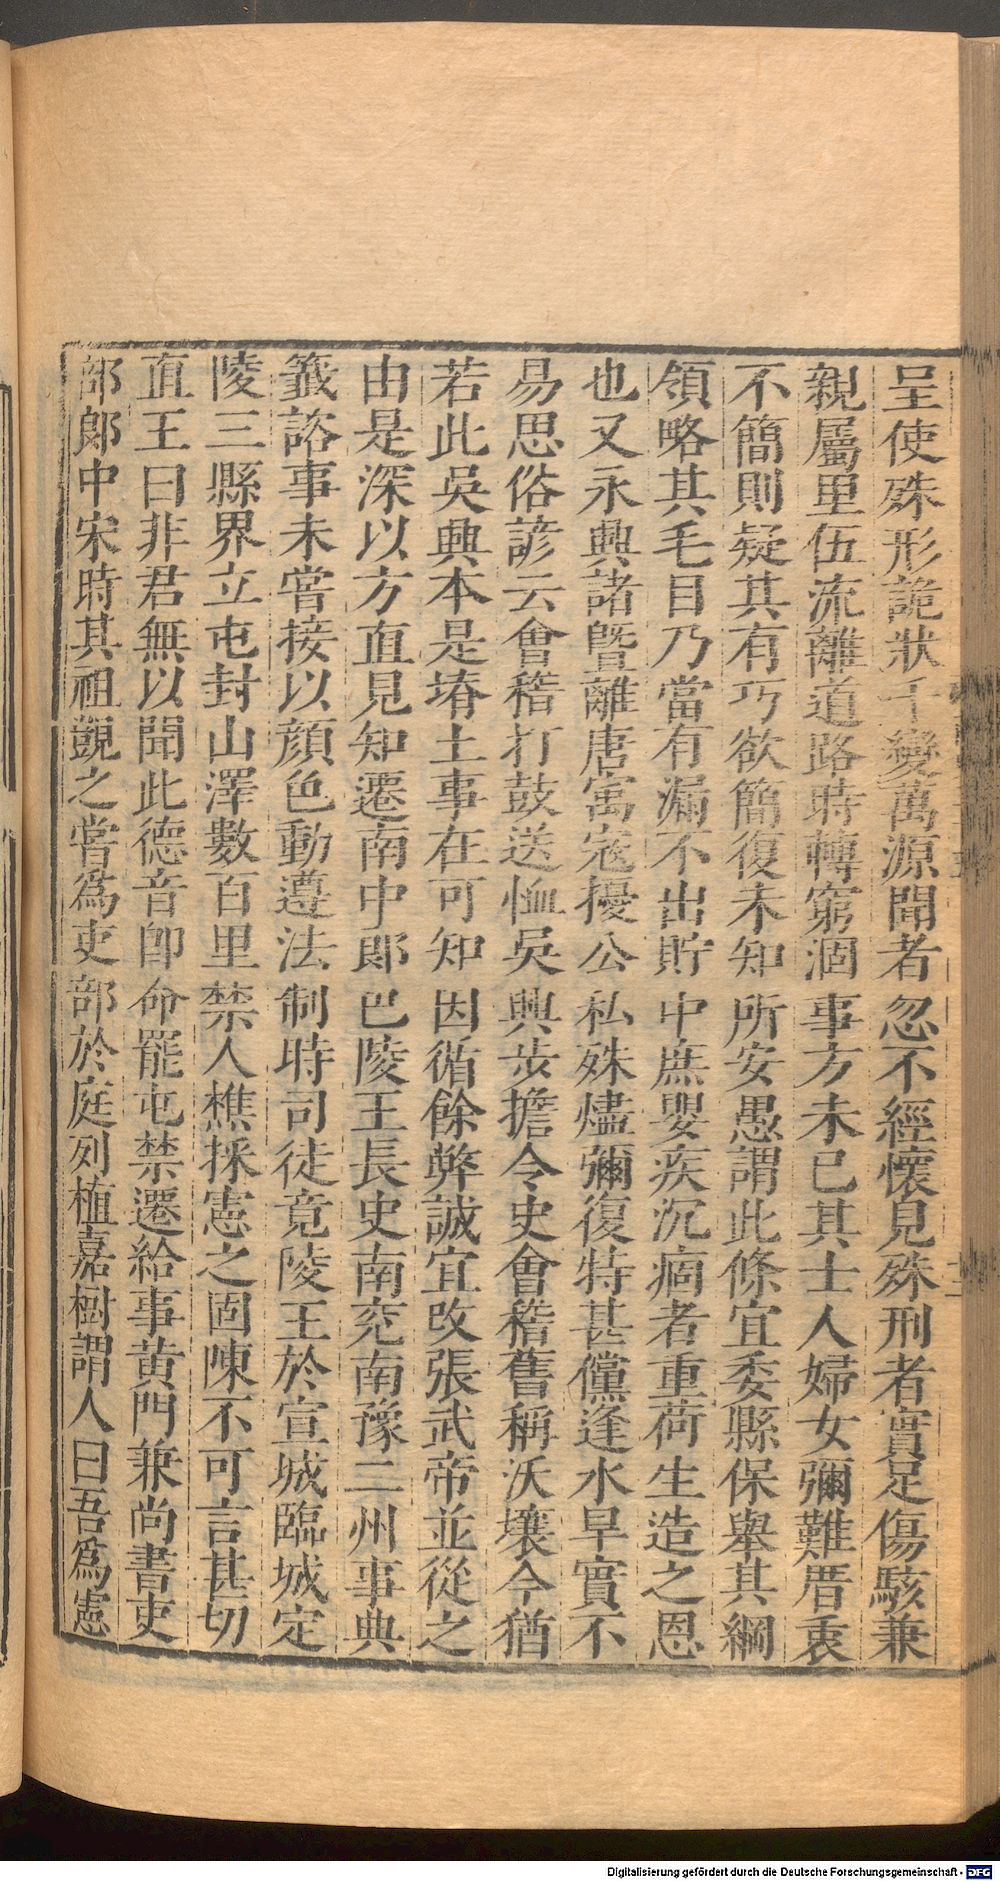 呈使殊形詭狀千變萬源聞者忽不經懷見殊刑者實足傷駭兼
親屬里伍流離道路時轉窮涸事方未已其士人婦女彌難厝衷
不簡則疑其有巧欲簡復未知所安愚謂此條宜委縣保舉其綱
領略其毛目乃當有漏不出貯中庶嬰疾沉痼者重荷生造之恩
也又永興諸暨離唐㝢寇擾公私殊燼彌復特甚儻逢水旱實不
易思俗諺云會稽打鼓送恤吳興步擔令史會稽舊稱沃壤今猶
若此吳興本是塉土事在可知因循餘弊誠宜改張武帝並從之
由是深以方直見知遷南中郎巴陵王長史南兖南豫二州事典
籖諮事未嘗接以顔色動遵法制時司徒竟陵王於宣城臨城定
陵三縣界立屯封山澤數百里禁人樵採憲之固陳不可言甚切
直王曰非君無以聞此德音卽命罷屯禁遷給事黄門兼尚書吏
部郎中宋時其祖覬之嘗爲吏部於庭列植嘉樹謂人曰吾爲憲
Digitalisierung gefördert durch die Deutsche Forschungsgemeinschaft - DFG